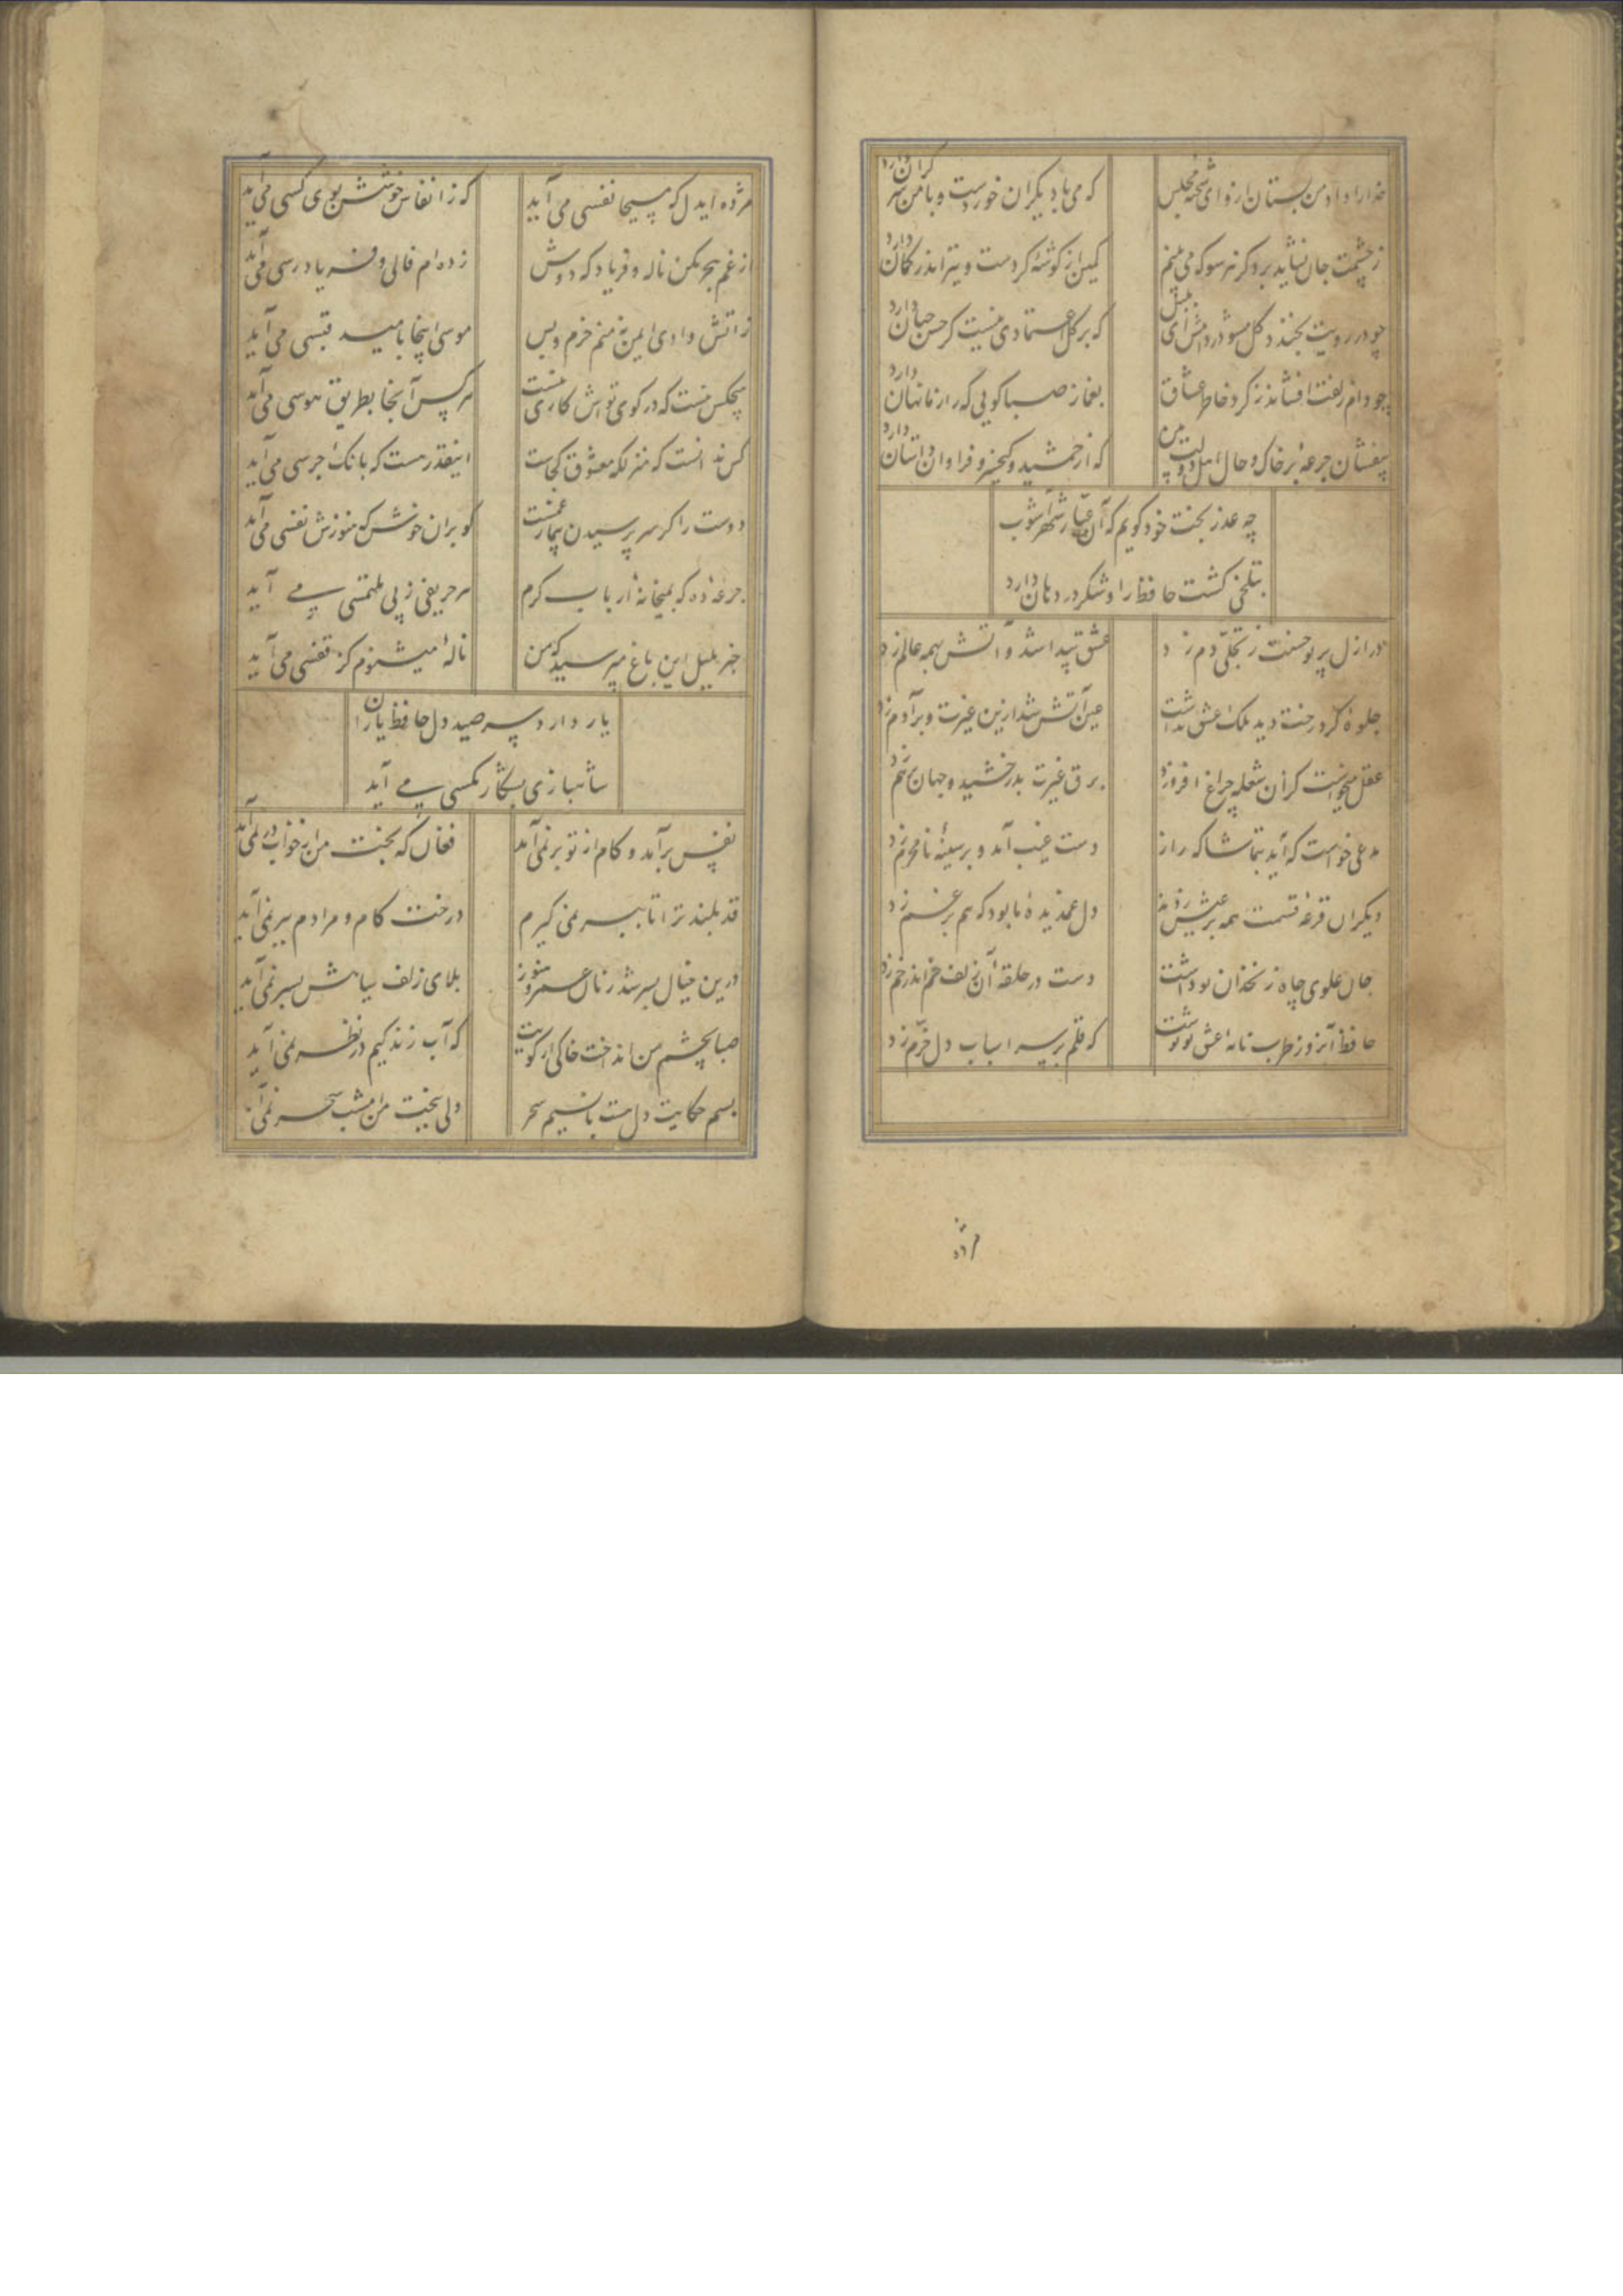 خدا را داد من بستان ازو ای شحنه مجلس
که می با دیگران خوردست و با من سر گران دارد
ز چشمت جان نشاید برد کز هر سو که می بینم
کمین از گوشه کردست و تیر اندر کمان دارد
چو در رویت بخندد گل مشو در دامش ای بلبل
که بر گل اعتمادی نیست گر حسن جهان دارد
چو دام زلفت افشاند ز گرد خاطر عشاق
بغماز صبا گویی که راز ما نهان دارد
بیفشان جرعه بر خاک و حال اهل دولت بین
که از جمشید و کیخسرو فراوان داستان دارد
چه عذر بخت خود گویم که آن عیار شهرآشوب
بتلخی کشت حافظ را و شکر در دهان دارد
در ازل پرتو حسنت ز تجلی دم زد
عشق پیدا شد و آتش بهمه عالم زد
جلوه کرد رخت دید ملک عشق نداشت
عین آتش شد ازین غیرت و بر آدم زد
عقل میخواست کزان شعله چراغ افروزد
برق غیرت بدرخشید و جهان برهم زد
مدعی خواست که آید بتماشاگه راز
دست غیب آمد و بر سینه نامحرم زد
دیگران قرعه قسمت همه بر عیش زدند
دل غمدیده ما بود که هم بر غم زد
جان علوی چاه زنخدان تو داشت
دست در حلقه آن زلف خم اندر خم زد
حافظ آنروز طرب نامه عشق تو نوشت
که قلم بر سر اسباب دل خرم زد
مژده
مژده ایدل که مسیحا نفسی می آید
که ز انفاس خوشش بوی کسی می آید
از غم هجر مکن ناله و فریاد که دوش
زده ام فالی و فریاد رسی می آید
ز آتش وادی ایمن نه منم خرم و بس
موسی اینجا بامید قبسی می آید
هیچکس نیست که در کوی تواش کاری نیست
هر کس آنجا بطریق هوسی می آید
کس ندانست که منزلگه معشوق کجاست
اینقدر هست که بانگ جرسی می آید
دوست را گر سر پرسیدن بیمار غمست
گو بران خوش که هنوزش نفسی می آید
جرعه ده که بمیخانه ارباب کرم
هر حریفی ز پی ملتمسی می آید
خبر بلبل این باغ مپرسید که من
ناله میشنوم کز قفسی می آید
یار دارد سر صید دل حافظ یاران
شاهبازی بشکار مگسی می آید
نفس برآمد و کام از تو بر نمی آید
فغان که بخت من از خواب در نمی آید
قد بلند ترا تا ببر نمی گیرم
درخت کام و مرادم ببر نمی آید
درین خیال بسر شد زمان عمر و هنوز
بلای زلف سیاهش بسر نمی آید
صبا بچشم من انداخت خاکی از کویت
که آب زندگیم در نظر نمی آید
بسم حکایت دل هست با نسیم سحر
ولی ببخت من امشب سحر نمی آید